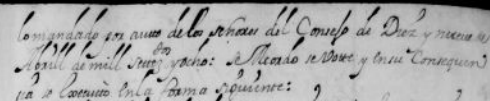 lo mandado por auto de los señores del Consejo de Diez y nueve de
Abrill de mill settez.dos y ocho: se Acordo se Vote y en su Consequen
se Executó en la forma siguiente: